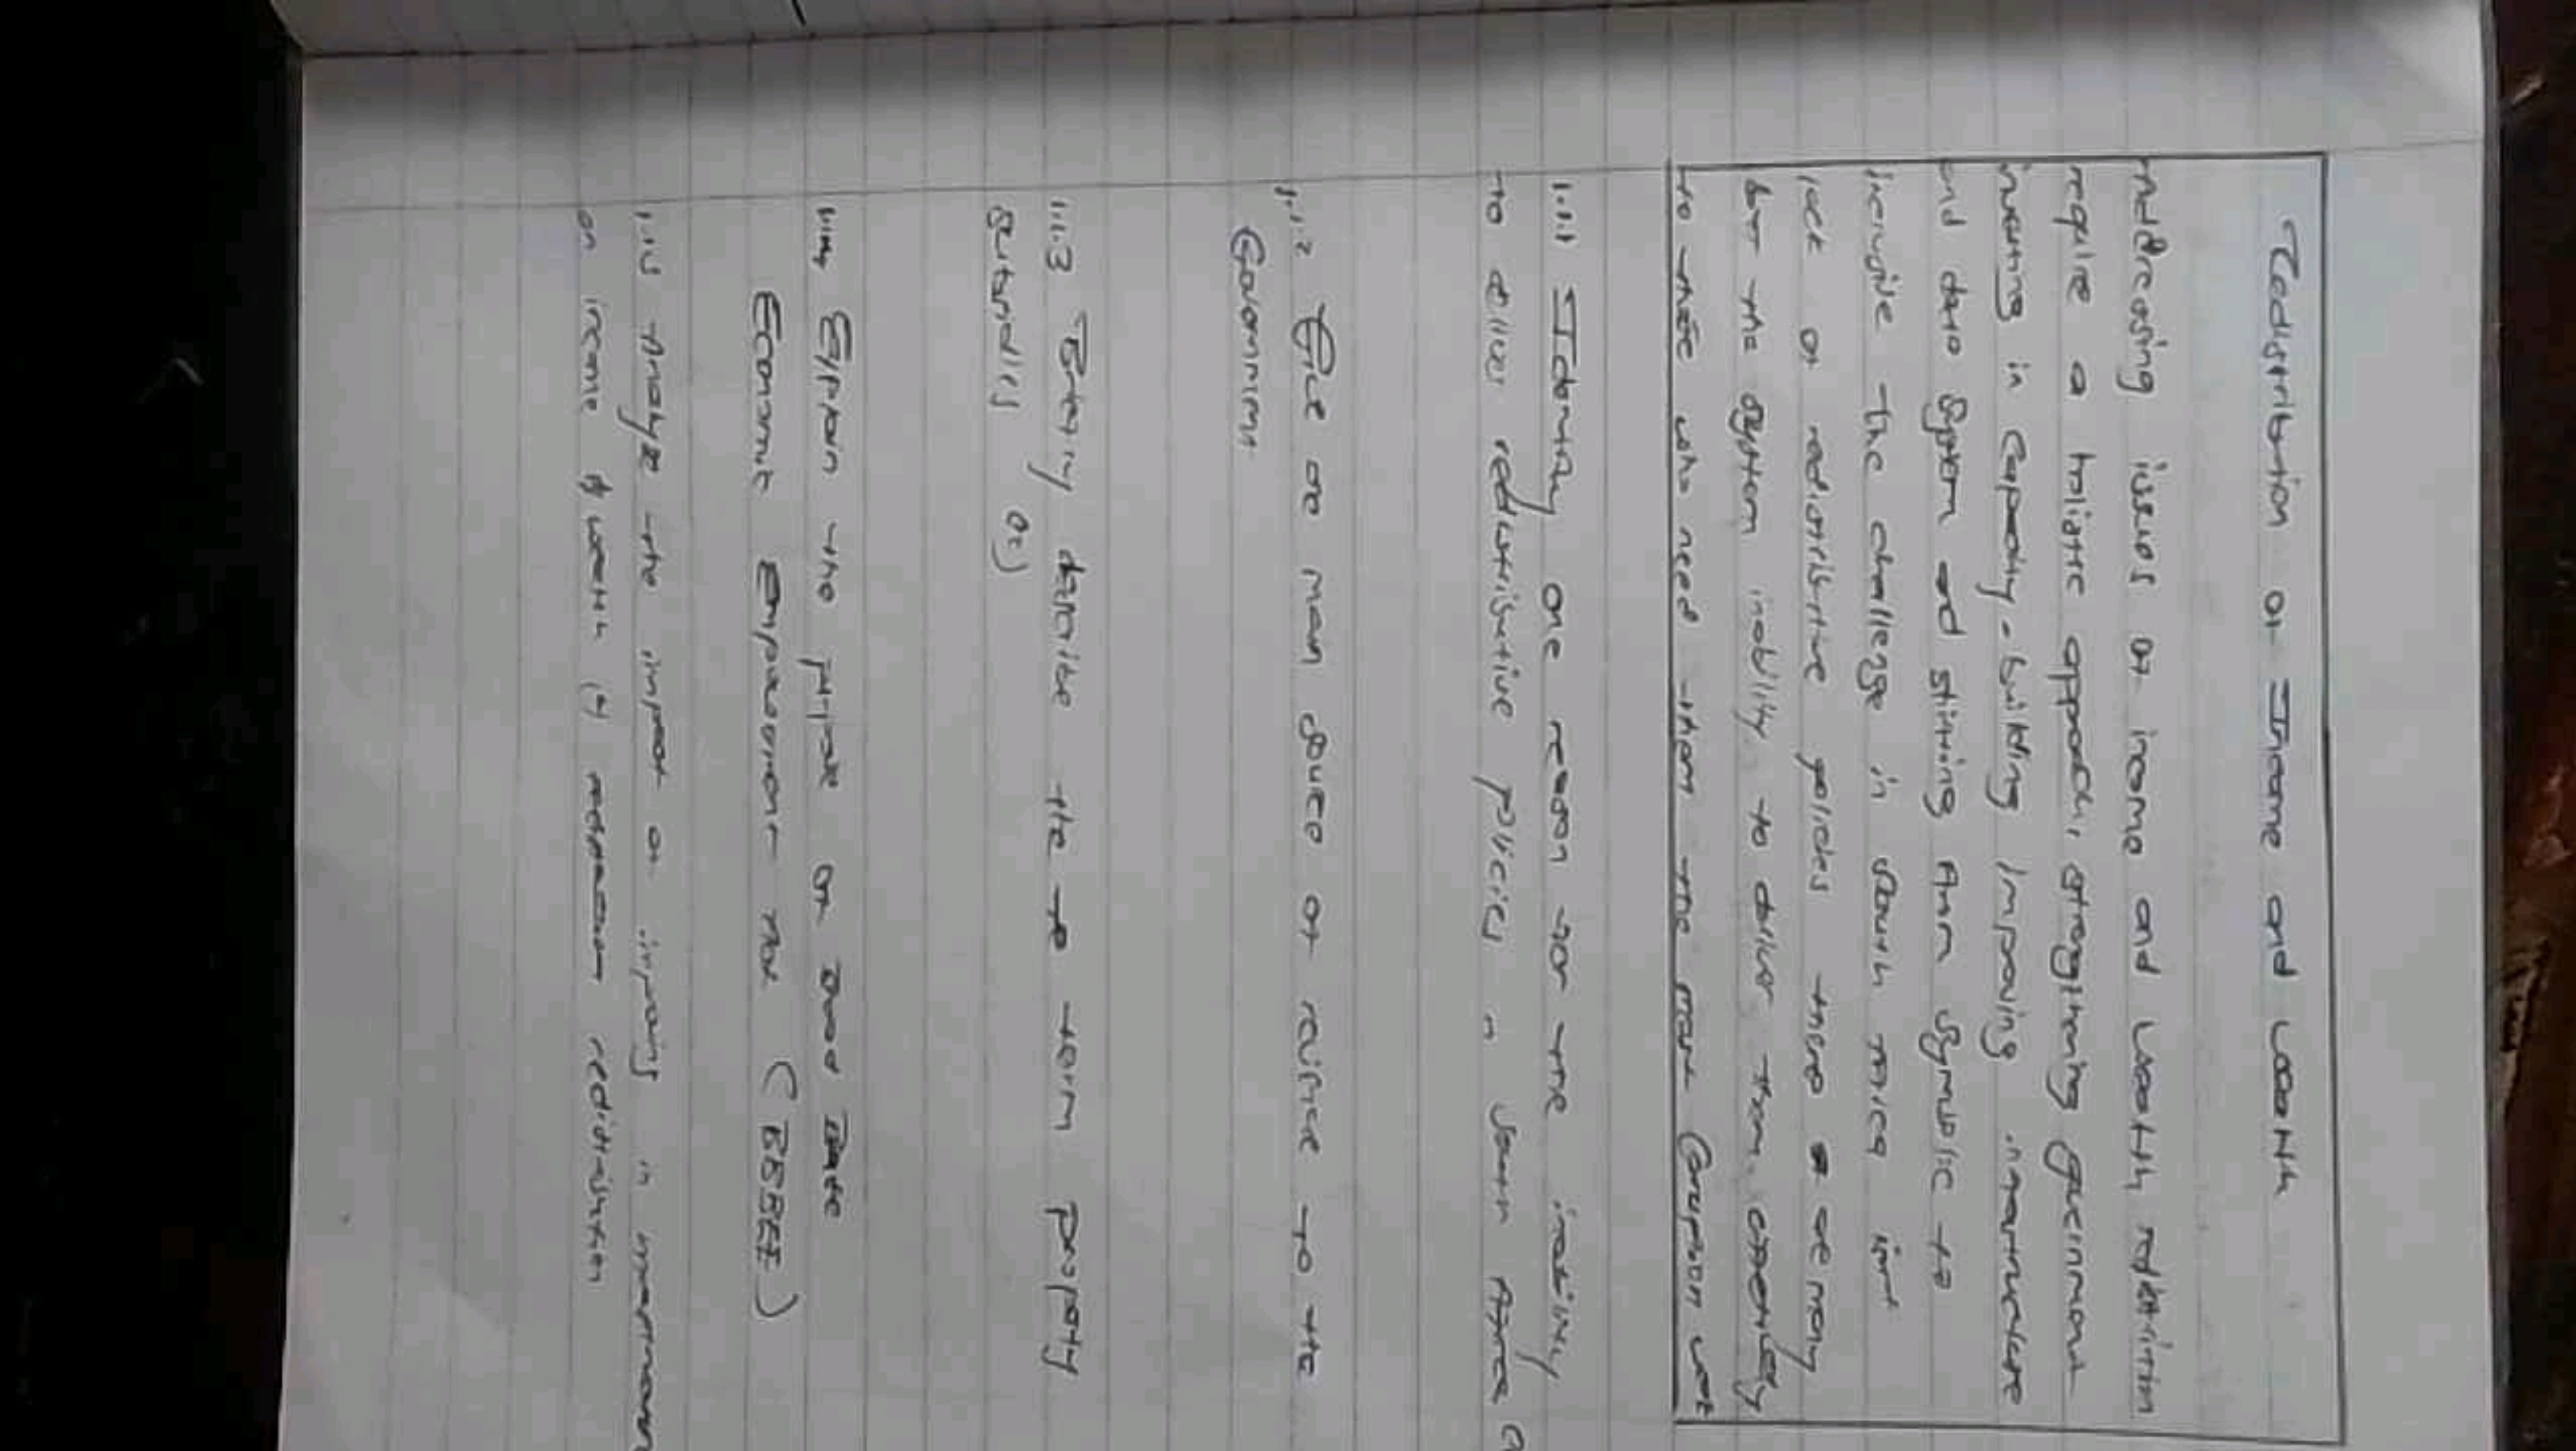 Redistribution of Income and Wealth
Addressing issues of income and wealth
require a holistic approach, strengthening government
investing in Capacity-building improving infrastructure
and data System and stiffing from
the challenge in South Africa isnt
lack of redistributive policies there are many
but the system inability to deliver them effectively
to those who need them the most Corruption
1.1.1 Identify one reason for the inability
to diliver redustributive plicies in South Africa
1.1.2 Give one main souce of revince to the
Government
1.1.3 Briefly describe the term property
Explain the purpose of Broad Based
Economic Empowerment (BBBEE)
Analyze the impact of in
on income & wealth